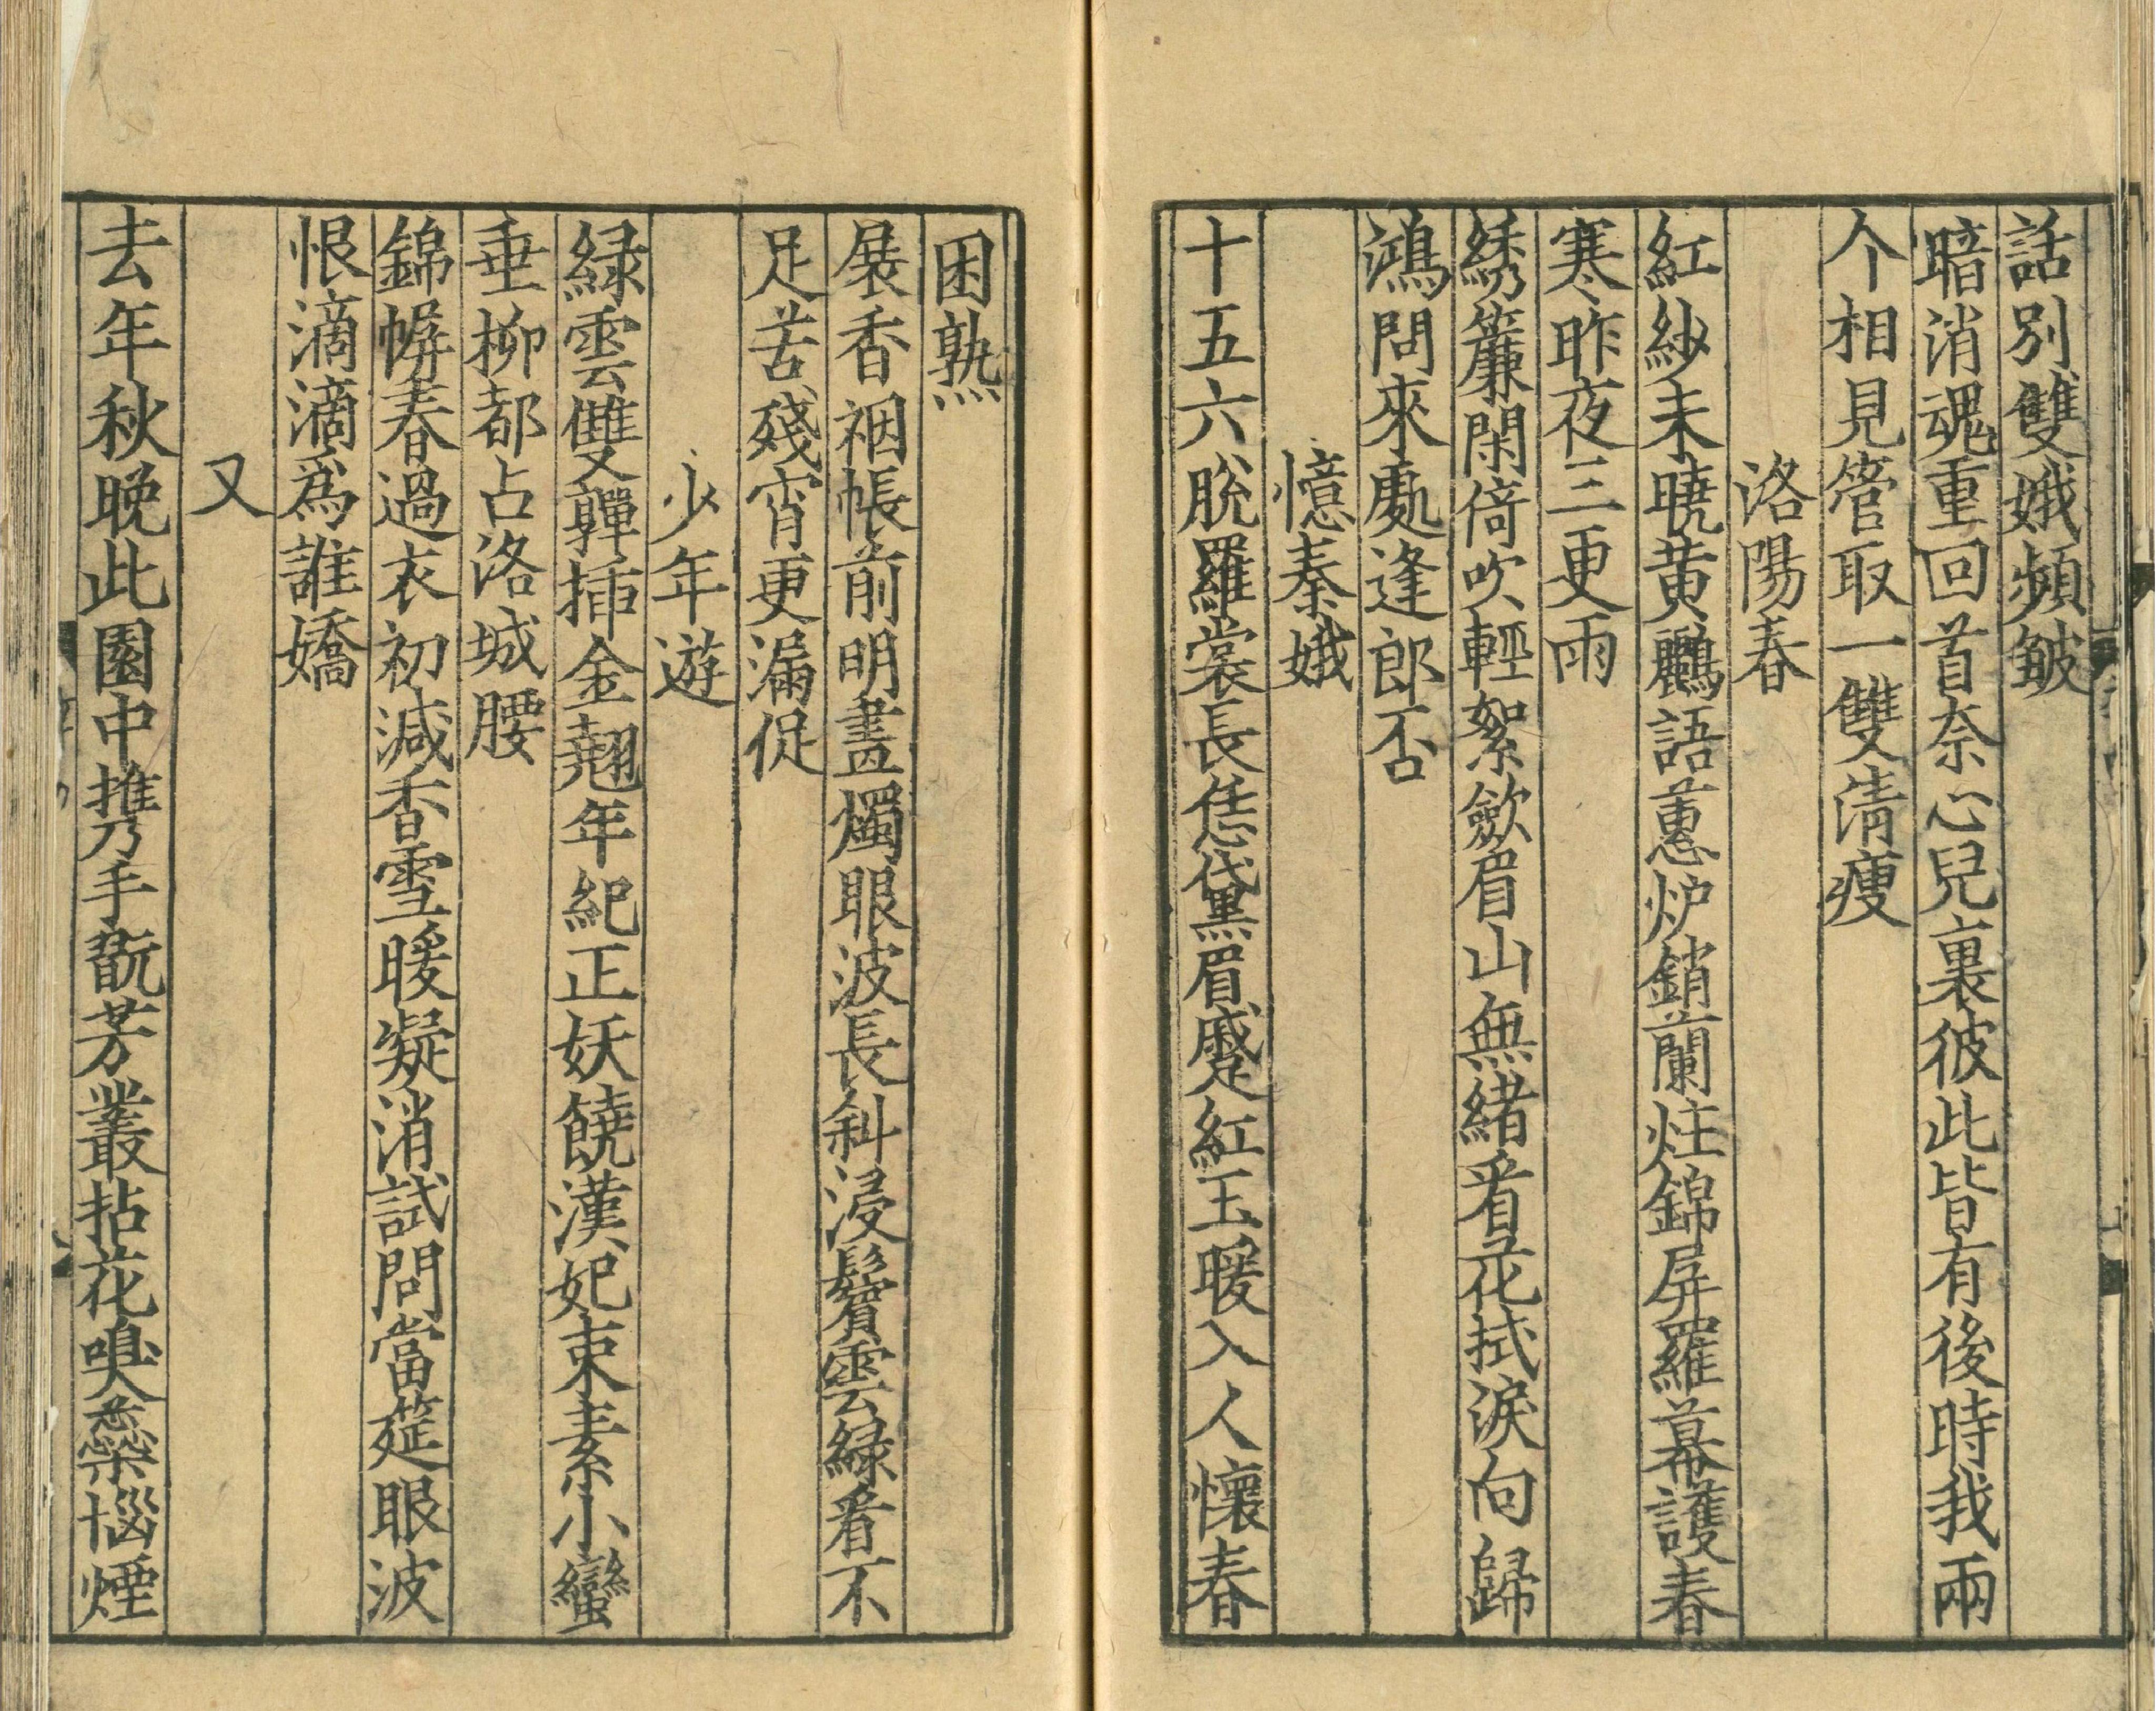 話別雙娥頻皺
暗消魂重回首奈心兒裏彼此皆有後時我兩
个相見管取一雙清瘦
洛陽春
紅紗未曉黃鸝語蕙炉銷蘭炷錦屏羅幕護春
寒昨夜三更雨
綉簾閑倚吹輕絮歛眉山無緒看花拭淚向歸
鴻問來處逢郎否
憶秦娥
十五六脫羅裳長恁黛眉蹙紅玉暖入人懷春
困熟
展香裀帳前明畫燭眼波長斜浸鬢雲綠看不
足苦殘宵更漏促
少年遊
綠雲雙嚲插金翹年紀正妖饒漢妃束素小蠻
垂柳都占洛城腰
錦幈春過衣初減香雪暖凝消試問當筵眼波
恨滴滴爲誰嬌
又
去年秋晚此園中攜手翫芳叢拈花嗅蘂惱煙